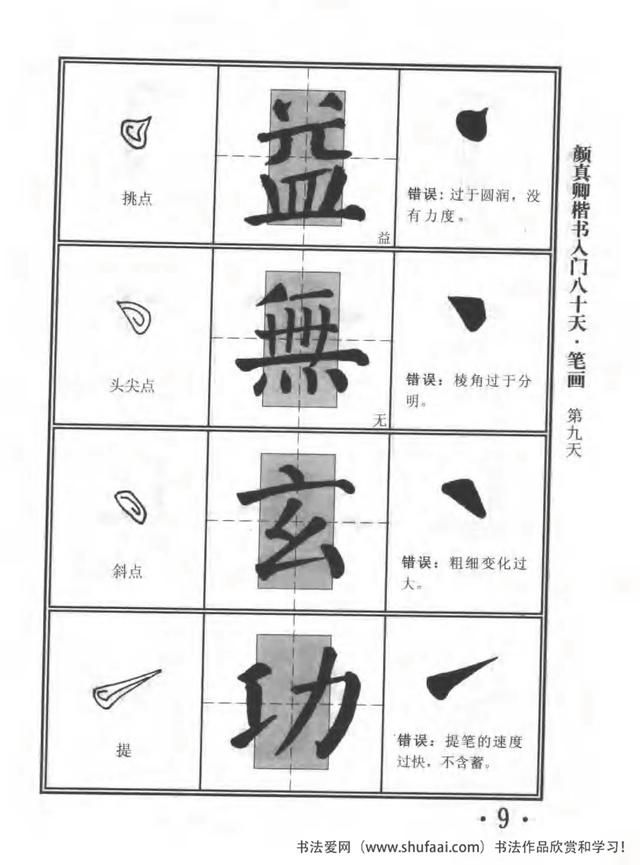 挑点
益
益
错误：过于圆润，没
有力度。
头尖点
無
无
错误：棱角过于分
明。
斜点
玄
错误：粗细变化过
大。
提
功
错误：提笔的速度
过快，不含蓄。
颜真卿楷书入门八十天·笔画 第九天
·9·
书法爱网（www.shufaai.com）书法作品欣赏和学习！